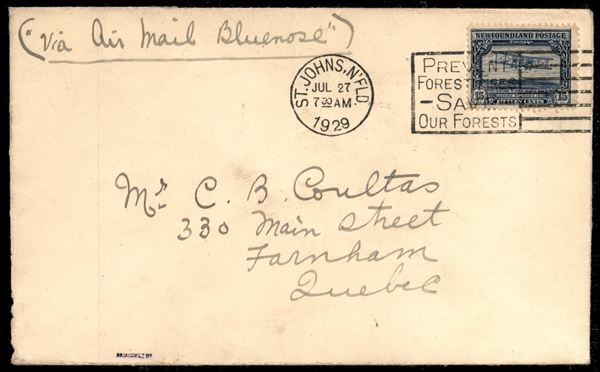 ("Via Air Mail Bluenose")
NEWFOUNDLAND POSTAGE
ST. JOHNS, N'FLD.
JUL 27
7 30 AM
1929
PREVENT
FOREST FIRES
- SAVE
OUR FORESTS
15 15
FIFTEEN CENTS
Mr. C. B. Coultas
330 Main Street
Farnham
Quebec